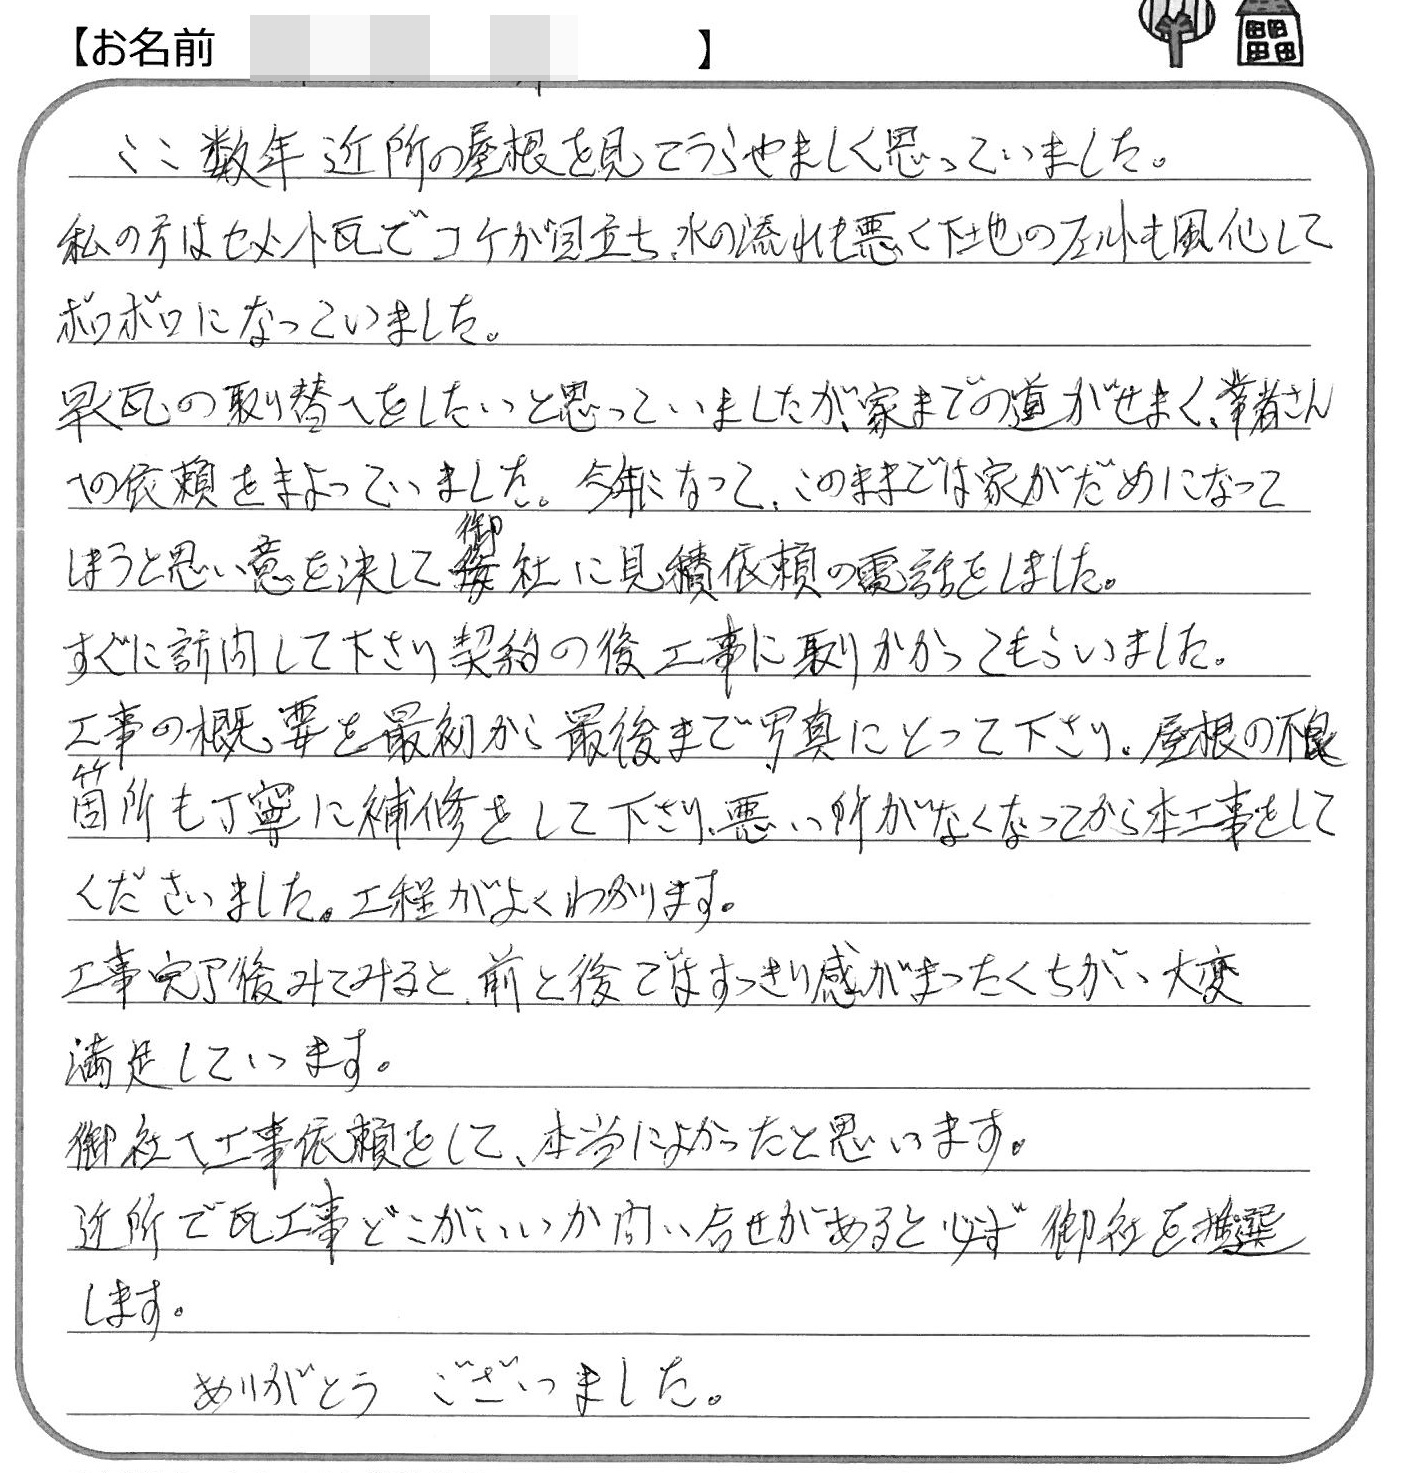 【お名前 】
ここ数年近所の屋根を見てうらやましく思っていました。
私の方はセメント瓦でコケが目立ち、水の流れも悪く下地のフェルトも風化して
ボロボロになっていました。
早く瓦の取り替へをしたいと思っていましたが、家までの道がせまく、業者さん
への依頼をまよっていました。今年になって、このままでは家がだめになって
しまうと思い意を決して御社に見積依頼の電話をしました。
すぐに訪問して下さり契約の後工事に取りかかってもらいました。
工事の概要を最初から最後まで写真にとって下さり、屋根の不良
箇所も丁寧に補修をして下さり、悪い所がなくなってから本工事をして
くださいました。工程がよくわかります。
工事完了後みてみると、前と後ではすっきり感がまったくちがい大変
満足しています。
御社へ工事依頼をして、本当によかったと思います。
近所で瓦工事どこがいいか問い合せがあると必ず御社を推選
します。
ありがとうございました。